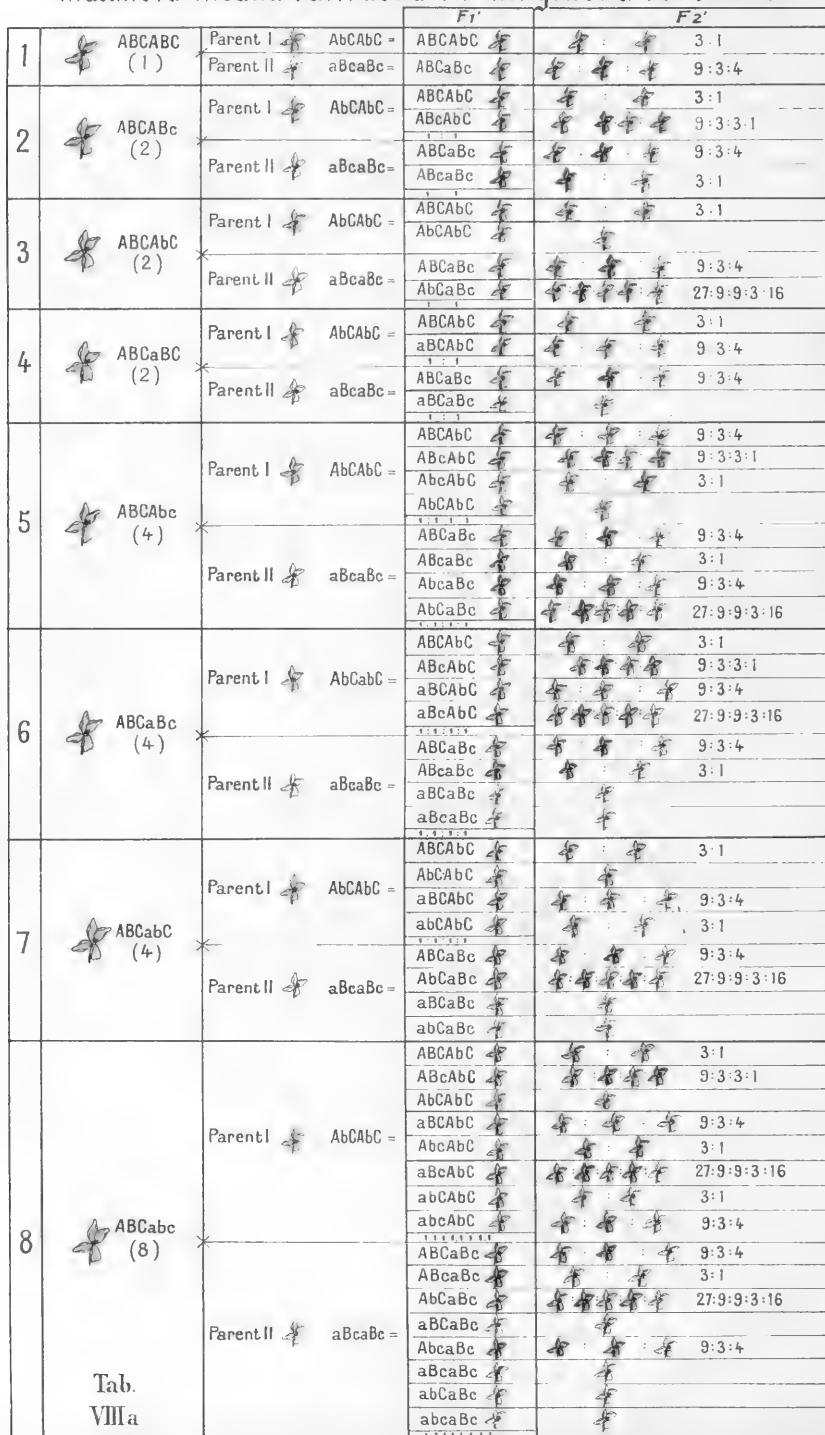 F1' F2'
1 ABCABC (1) Parent I AbCAbC = ABCAbC 3:1
Parent II aBcaBc = ABCaBc 9:3:4
2 ABCABc (2) Parent I AbCAbC = ABCAbC 3:1
ABcAbC 9:3:3:1
1:1
Parent II aBcaBc = ABCaBc 9:3:4
ABcaBc 3:1
1:1
3 ABCAbC (2) Parent I AbCAbC = ABCAbC 3:1
AbCAbC
Parent II aBcaBc = ABCaBc 9:3:4
AbCaBc 27:9:9:3:16
1:1
4 ABCaBC (2) Parent I AbCAbC = ABCAbC 3:1
aBCAbC 9:3:4
1:1
Parent II aBcaBc = ABCaBc 9:3:4
aBCaBc
1:1
5 ABCAbc (4) Parent I AbCAbC = ABCAbC 9:3:4
ABcAbC 9:3:3:1
AbcAbC 3:1
AbCAbC
1:1:1:1
Parent II aBcaBc = ABCaBc 9:3:4
ABcaBc 3:1
AbcaBc 9:3:4
AbCaBc 27:9:9:3:16
1:1:1:1
6 ABCaBc (4) Parent I AbCabC = ABCAbC 3:1
ABcAbC 9:3:3:1
aBCAbC 9:3:4
aBcAbC 27:9:9:3:16
1:1:1:1
Parent II aBcaBc = ABCaBc 9:3:4
ABcaBc 3:1
aBCaBc
aBcaBc
1:1:1:1
7 ABCabC (4) Parent I AbCAbC = ABCAbC 3:1
AbCAbC
aBCAbC 9:3:4
abCAbC 3:1
1:1:1:1
Parent II aBcaBc = ABCaBc 9:3:4
AbCaBc 27:9:9:3:16
aBCaBc
abCaBc
8 ABCabc (8) Parent I AbCAbC = ABCAbC 3:1
ABcAbC 9:3:3:1
AbCAbC
aBCAbC 9:3:4
AbcAbC 3:1
aBcAbC 27:9:9:3:16
abCAbC 3:1
abcAbC 9:3:4
1:1:1:1:1:1:1:1
Parent II aBcaBc = ABCaBc 9:3:4
ABcaBc 3:1
AbCaBc 27:9:9:3:16
aBCaBc
AbcaBc 9:3:4
aBcaBc
abCaBc
abcaBc
Tab.
VIIIa